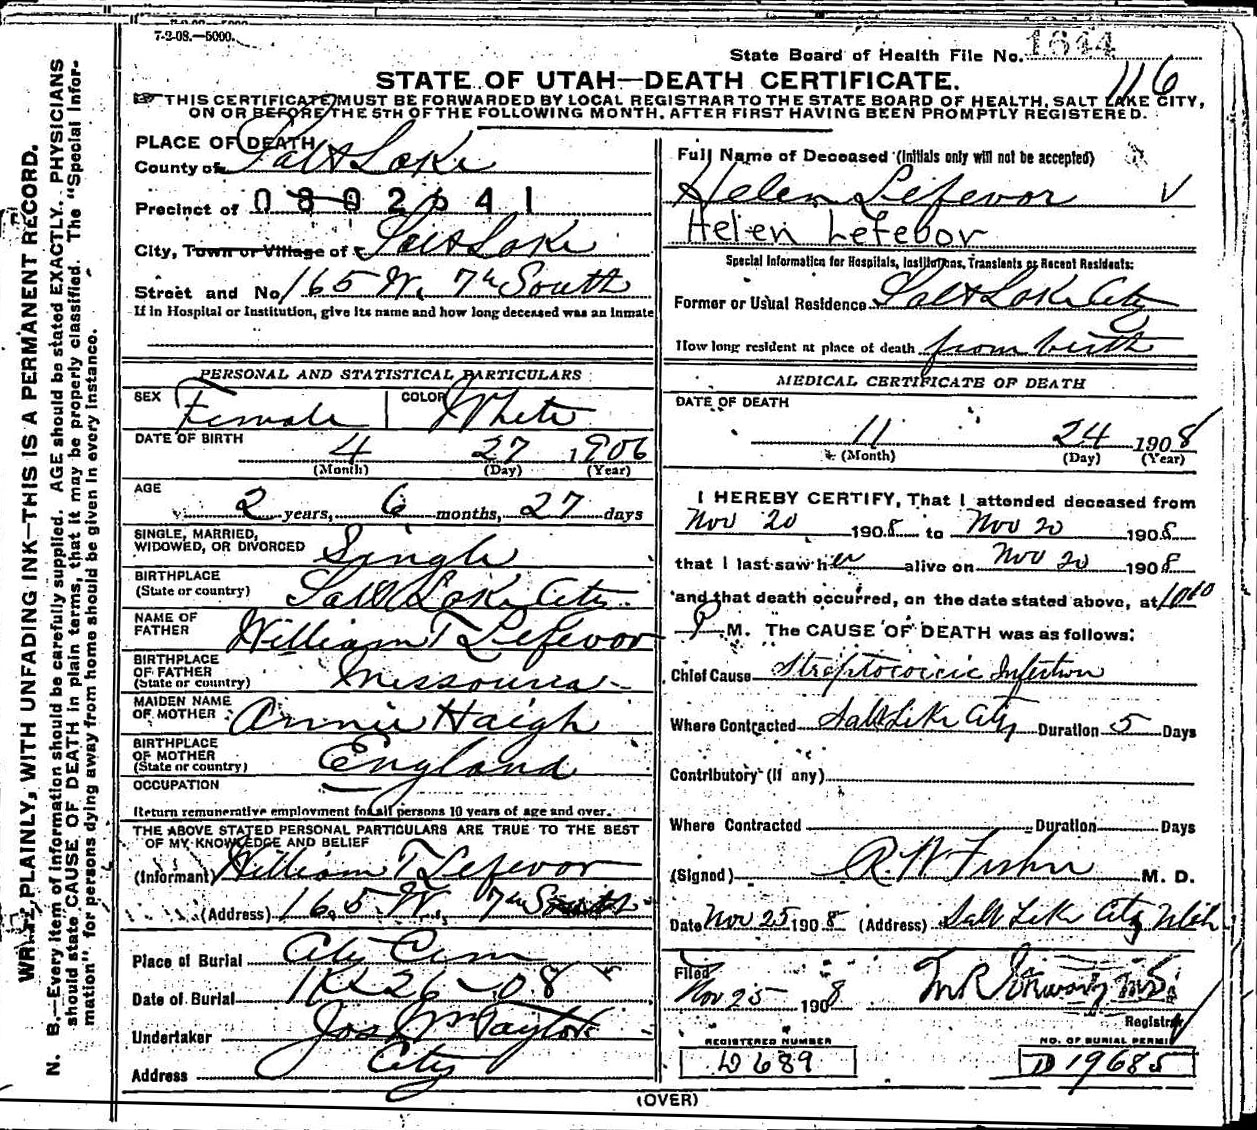 7-2-08.—5000.
State Board of Health File No. 1644
116
STATE OF UTAH—DEATH CERTIFICATE.
☞ THIS CERTIFICATE MUST BE FORWARDED BY LOCAL REGISTRAR TO THE STATE BOARD OF HEALTH, SALT LAKE CITY,
ON OR BEFORE THE 5TH OF THE FOLLOWING MONTH, AFTER FIRST HAVING BEEN PROMPTLY REGISTERED.
WRITE PLAINLY, WITH UNFADING INK—THIS IS A PERMANENT RECORD.
N. B.—Every item of information should be carefully supplied. AGE should be stated EXACTLY. PHYSICIANS
should state CAUSE OF DEATH in plain terms, that it may be properly classified. The "Special Infor-
mation" for persons dying away from home should be given in every instance.
PLACE OF DEATH
County of Salt Lake
Precinct of 0802641
City, Town or Village of Salt Lake
Street and No. 165 W. 7th South
If in Hospital or Institution, give its name and how long deceased was an inmate
PERSONAL AND STATISTICAL PARTICULARS
SEX Female COLOR White
DATE OF BIRTH 4 27 1906
(Month) (Day) (Year)
AGE 2 years, 6 months, 27 days
SINGLE, MARRIED,
WIDOWED, OR DIVORCED Single
BIRTHPLACE
(State or country) Salt Lake City
NAME OF
FATHER William T Lefevor
BIRTHPLACE
OF FATHER
(State or country) Missouria
MAIDEN NAME
OF MOTHER Annie Haigh
BIRTHPLACE
OF MOTHER
(State or country) England
OCCUPATION
Return remunerative employment for all persons 10 years of age and over.
THE ABOVE STATED PERSONAL PARTICULARS ARE TRUE TO THE BEST
OF MY KNOWLEDGE AND BELIEF
(Informant) William T Lefevor
(Address) 165 W. 7th South
Place of Burial City Cem
Date of Burial 26-08
Undertaker Jos Wm Taylor
Address City
Full Name of Deceased (Initials only will not be accepted)
Helen Lefevor
Helen Lefebor
Special Information for Hospitals, Institutions, Transients or Recent Residents:
Former or Usual Residence Salt Lake City
How long resident at place of death from birth
MEDICAL CERTIFICATE OF DEATH
DATE OF DEATH
11 24 1908
(Month) (Day) (Year)
I HEREBY CERTIFY, That I attended deceased from
Nov 20 1908 to Nov 20 1908
that I last saw her alive on Nov 20 1908
and that death occurred, on the date stated above, at 10:10
P M. The CAUSE OF DEATH was as follows:
Chief Cause Streptococcic Infection
Where Contracted Salt Lake City Duration 5 Days
Contributory (if any)
Where Contracted Duration Days
(Signed) R. W. Fisher M. D.
Date Nov 25 1908 (Address) Salt Lake City Utah
Filed
Nov 25 1908
Registrar
REGISTERED NUMBER
D689
NO. OF BURIAL PERMIT
D19685
(OVER)